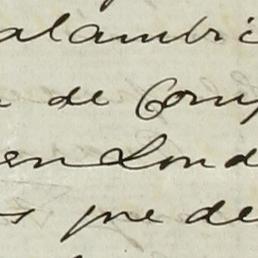 alambri
de Comp
en Lond
s que de